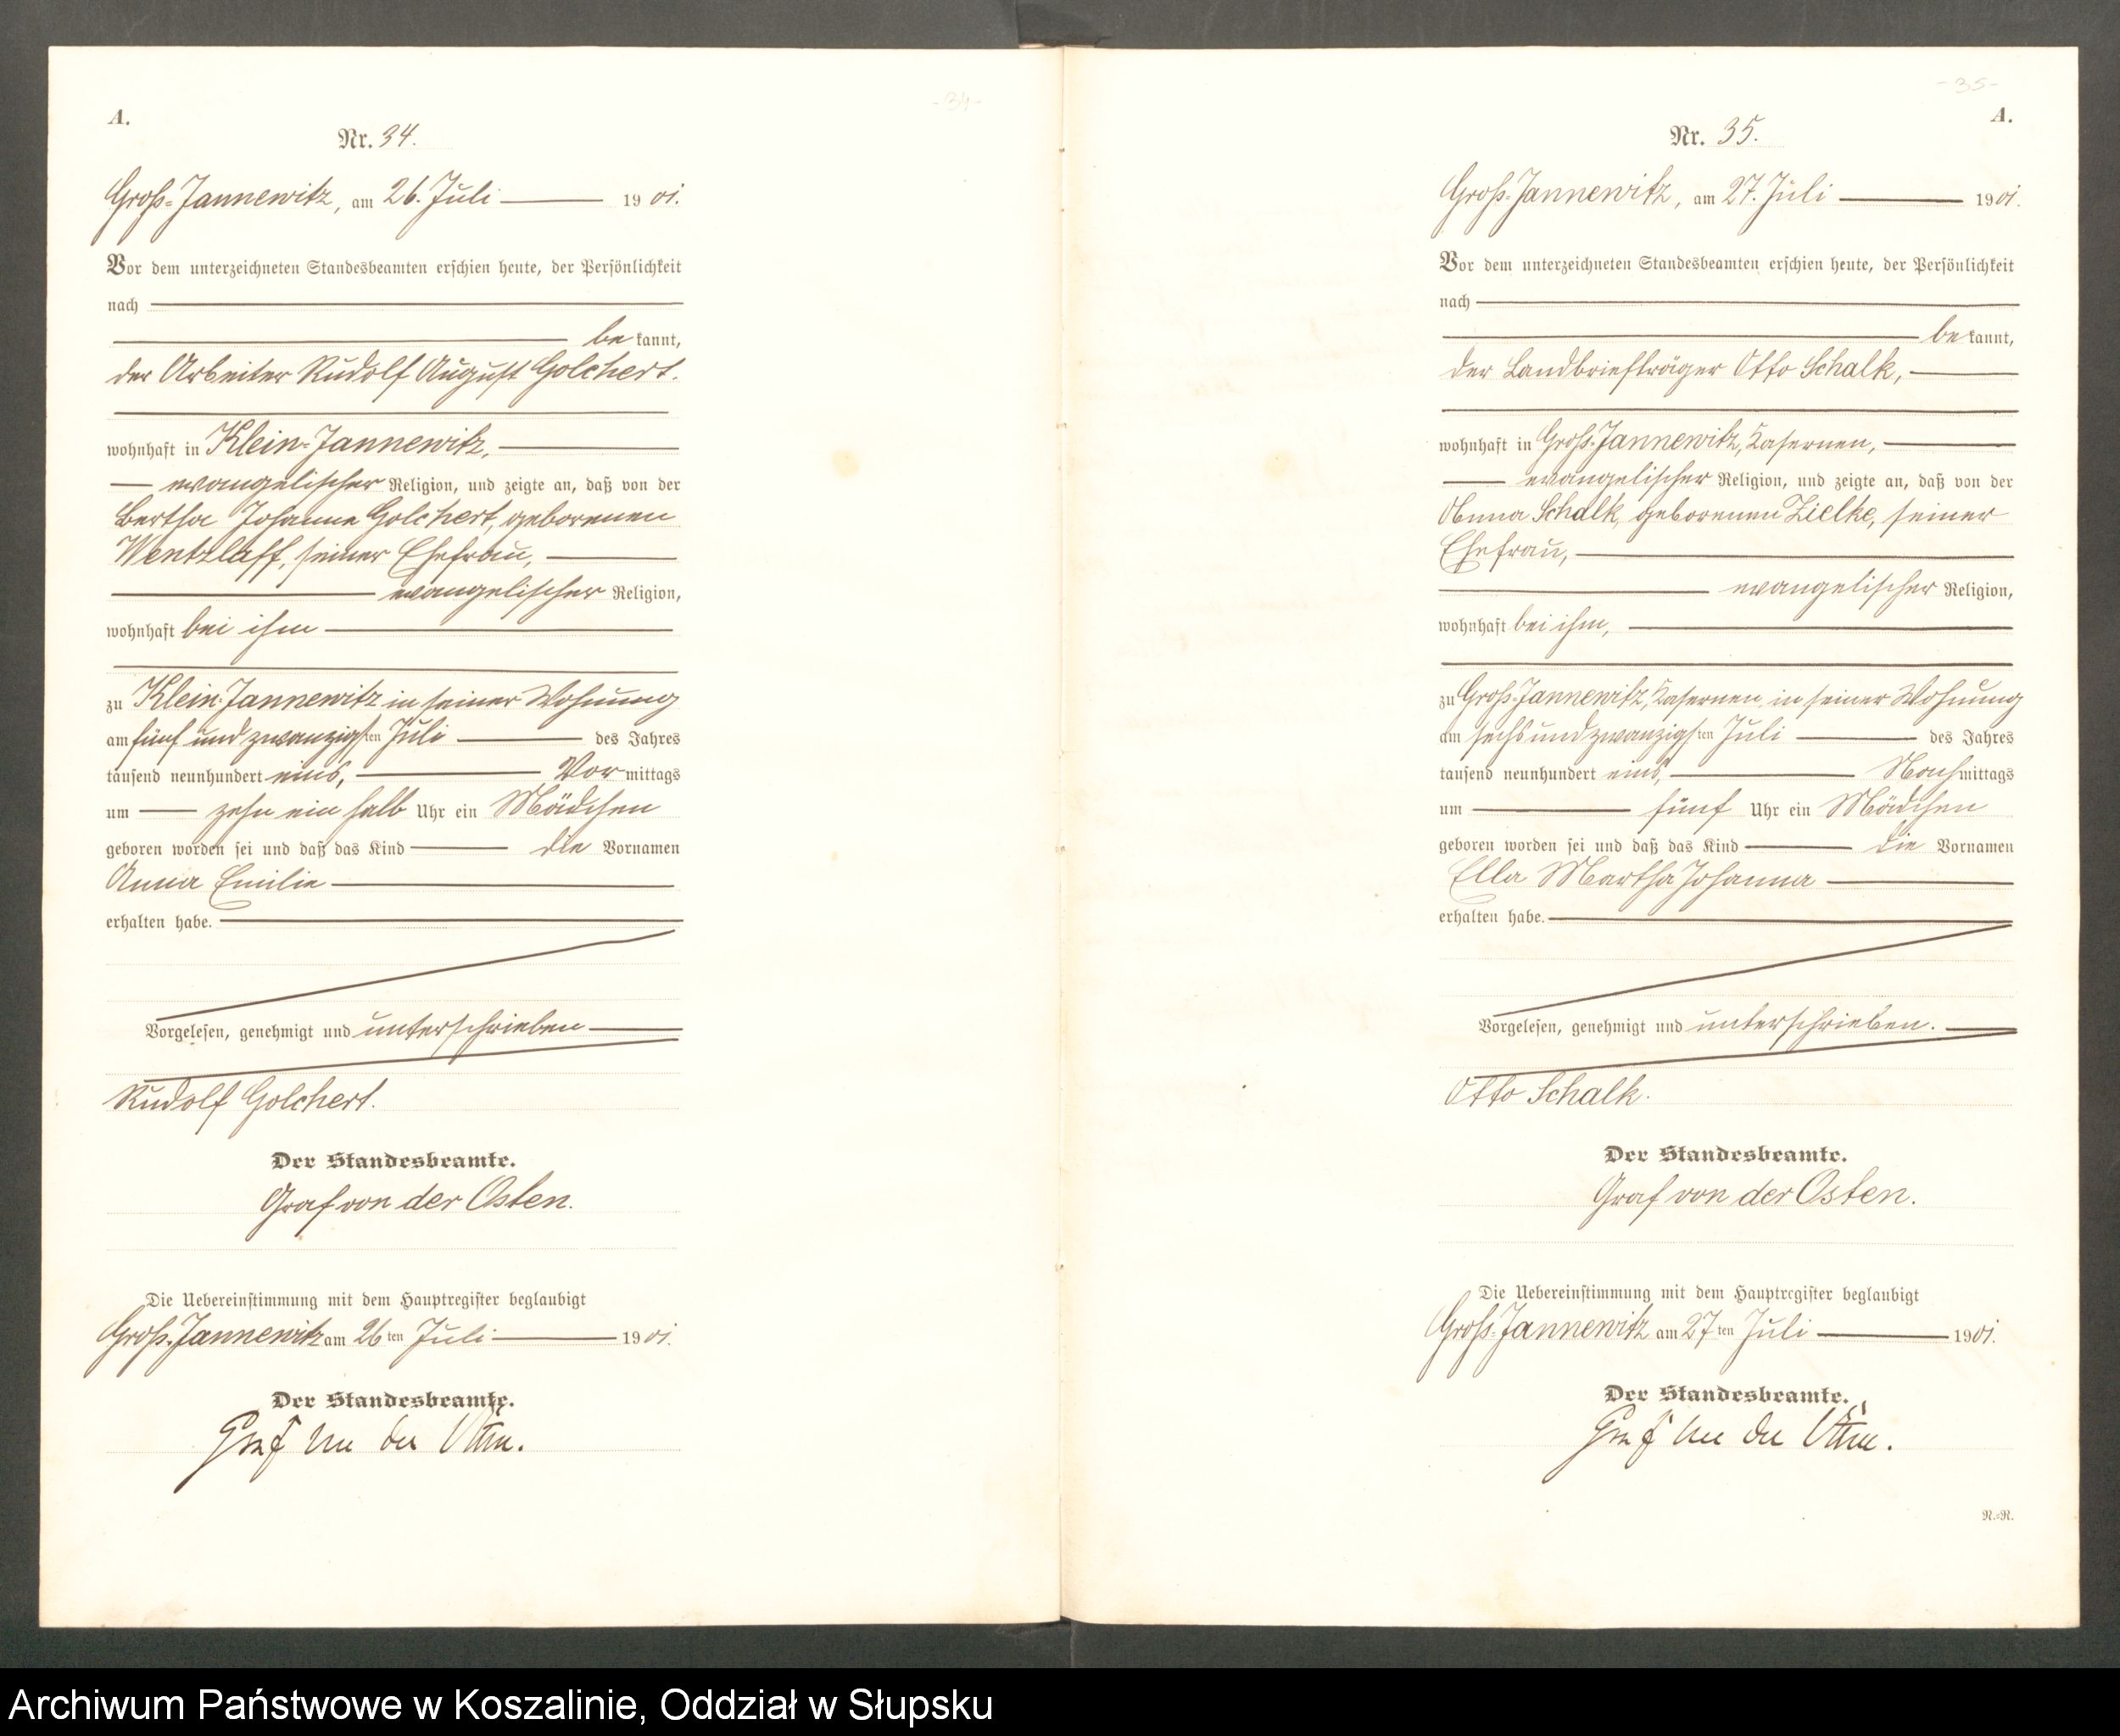 -34-
A.
Nr. 34.
Groß-Jannewitz, am 26. Juli 1901.
Vor dem unterzeichneten Standesbeamten erschien heute, der Persönlichkeit
nach
bekannt,
der Arbeiter Rudolf August Golchert.
wohnhaft in Klein-Jannewitz,
evangelischer Religion, und zeigte an, daß von der
Bertha Johanne Golchert, geborenen
Wentzlaff, seiner Ehefrau,
evangelischer Religion,
wohnhaft bei ihm
zu Klein-Jannewitz in seiner Wohnung
am fünf und zwanzigsten Juli des Jahres
tausend neunhundert eins, Vormittags
um zehn ein halb Uhr ein Mädchen
geboren worden sei und daß das Kind die Vornamen
Anna Emilie
erhalten habe.
Vorgelesen, genehmigt und unterschrieben
Rudolf Golchert.
Der Standesbeamte.
Graf von der Osten.
Die Uebereinstimmung mit dem Hauptregister beglaubigt
Groß-Jannewitz am 26ten Juli 1901.
Der Standesbeamte.
Graf von der Osten.
-35-
A.
Nr. 35.
Groß-Jannewitz, am 27. Juli 1901.
Vor dem unterzeichneten Standesbeamten erschien heute, der Persönlichkeit
nach
bekannt,
der Landbriefträger Otto Schalk,
wohnhaft in Groß-Jannewitz, Kasernen,
evangelischer Religion, und zeigte an, daß von der
Anna Schalk, geborenen Zielke, seiner
Ehefrau,
evangelischer Religion,
wohnhaft bei ihm,
zu Groß-Jannewitz, Kasernen in seiner Wohnung
am sechs und zwanzigsten Juli des Jahres
tausend neunhundert eins, Nachmittags
um fünf Uhr ein Mädchen
geboren worden sei und daß das Kind die Vornamen
Ella Martha Johanna
erhalten habe.
Vorgelesen, genehmigt und unterschrieben.
Otto Schalk.
Der Standesbeamte.
Graf von der Osten.
Die Uebereinstimmung mit dem Hauptregister beglaubigt
Groß-Jannewitz am 27ten Juli 1901.
Der Standesbeamte.
Graf von der Osten.
N.=N.
Archiwum Państwowe w Koszalinie, Oddział w Słupsku